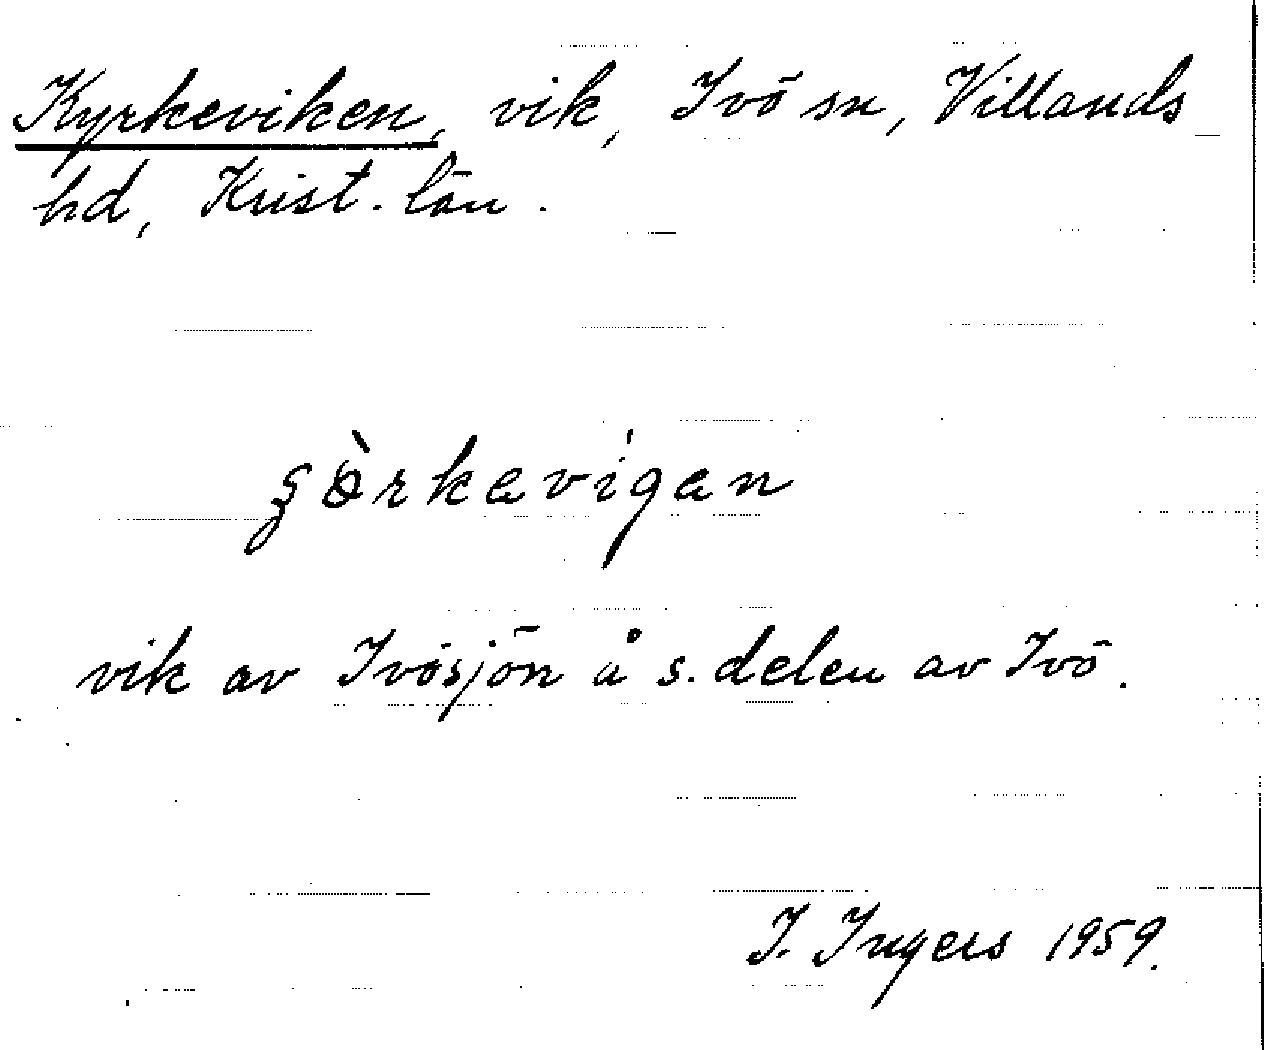 Kyrkeviken, vik, Ivö sn, Villands
hd, Krist. län.
ʂö̀rkavígan
vik av Ivösjön å s. delen av Ivö.
I. Ingers 1959.